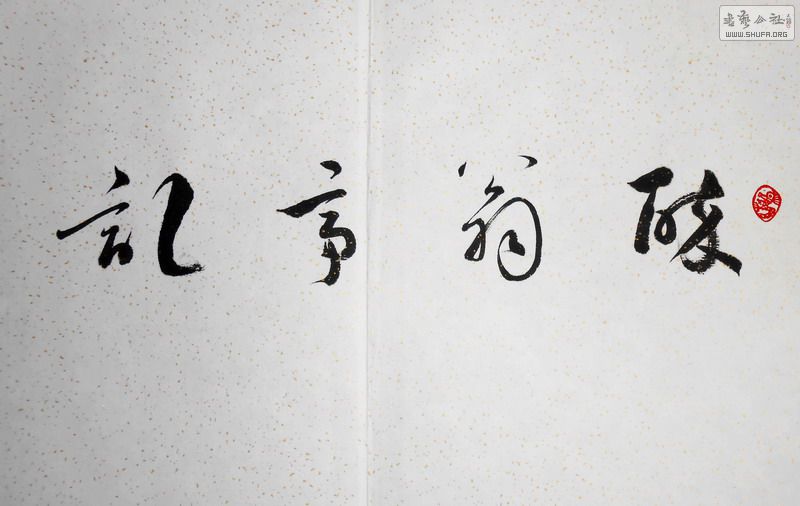 醉翁亭記
書藝公社
WWW.SHUFA.ORG